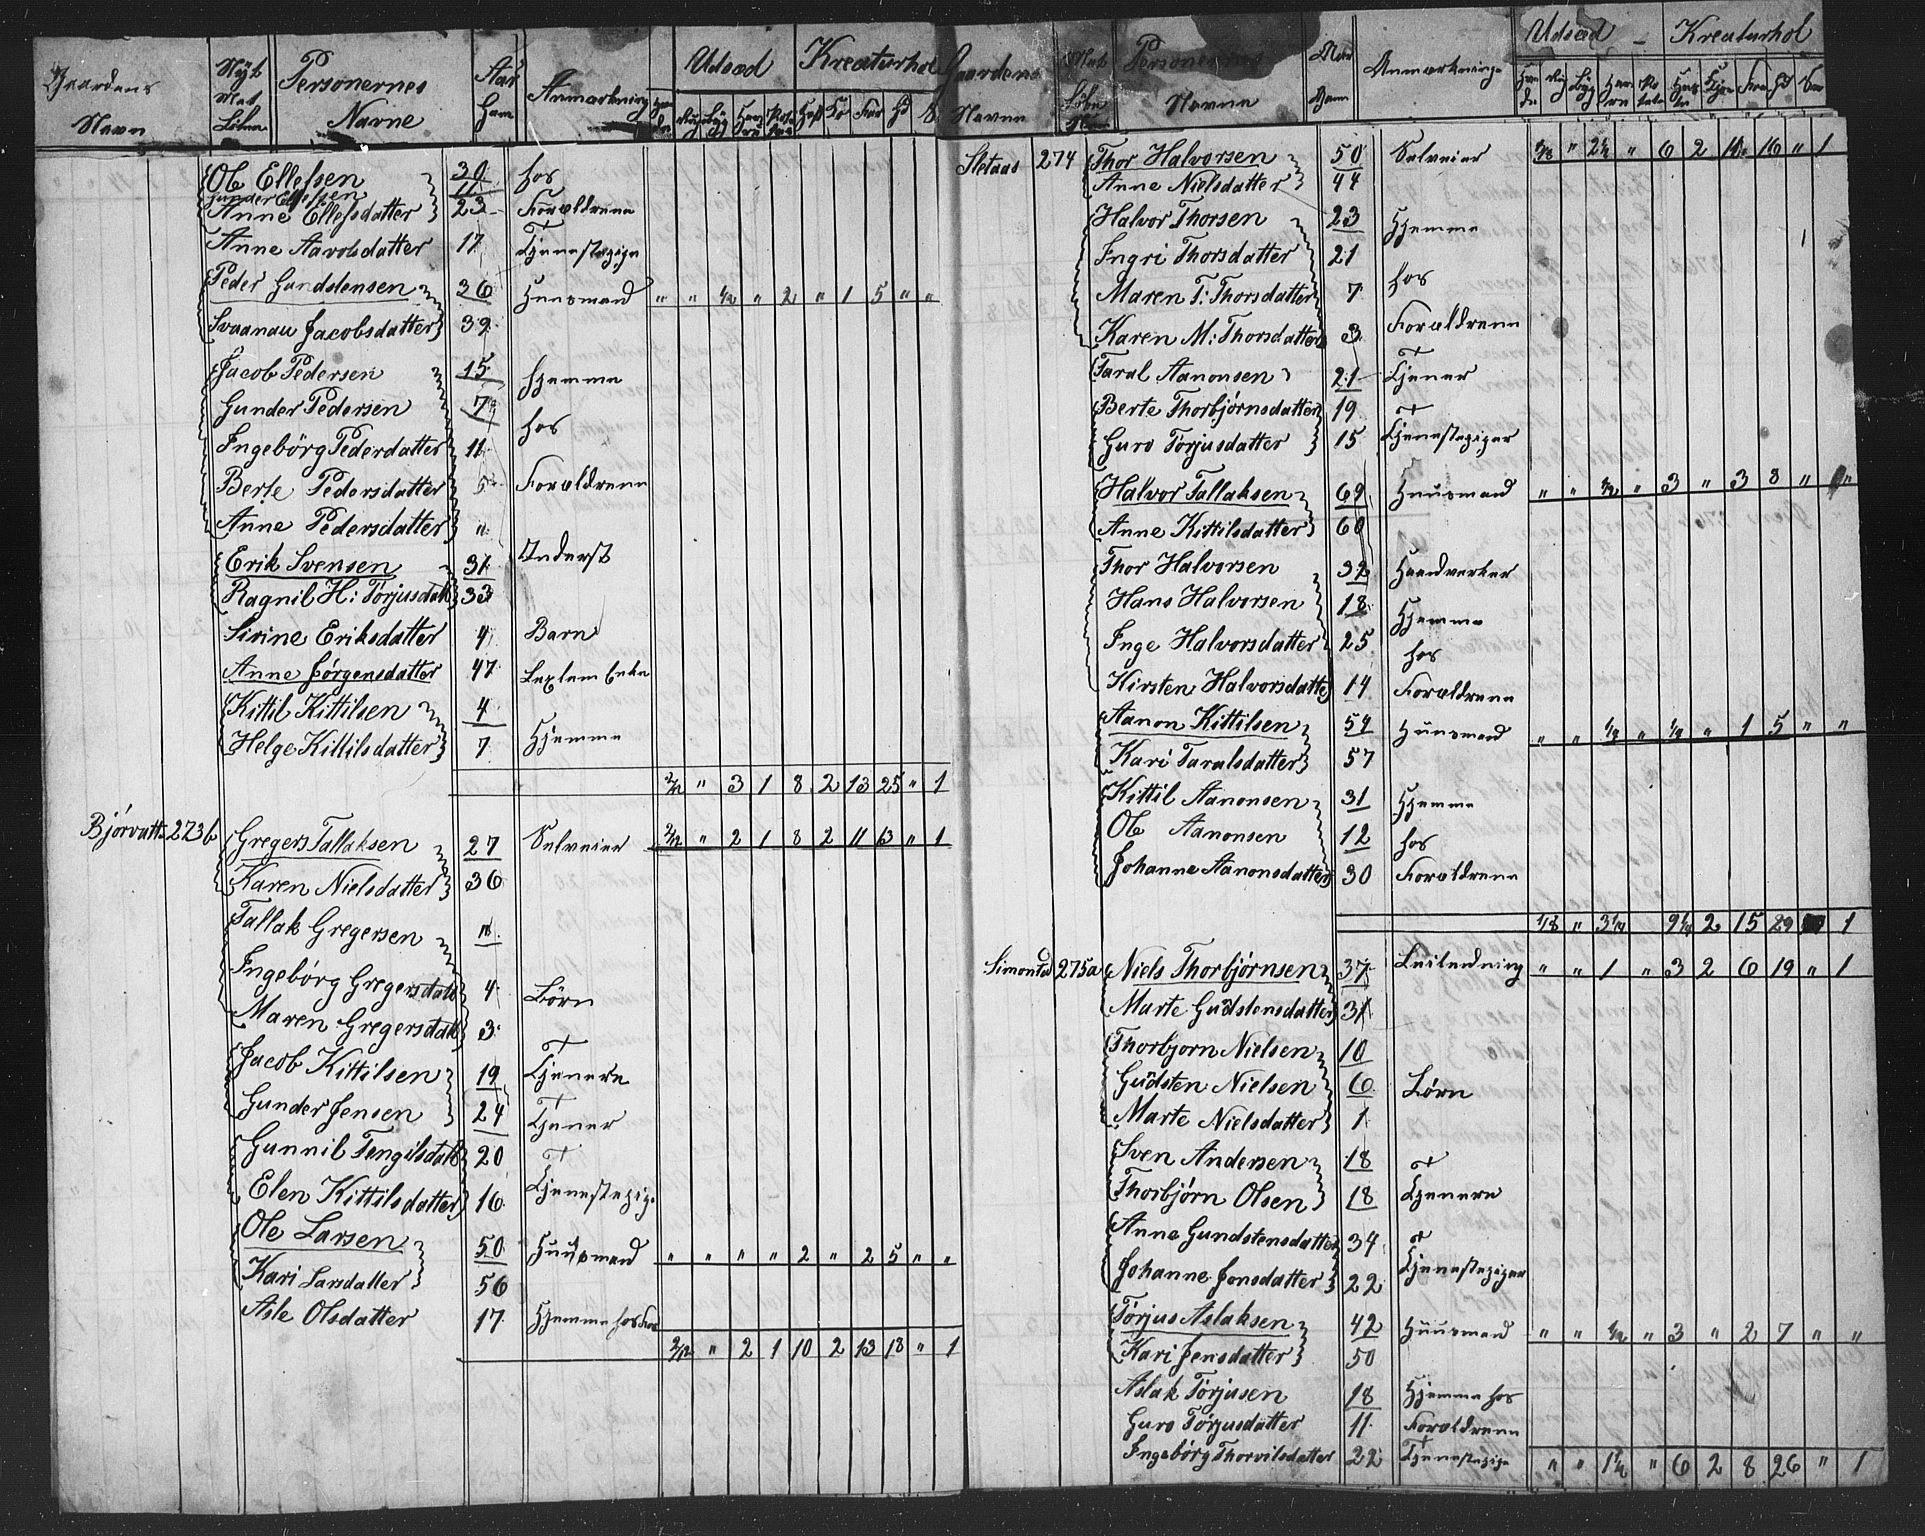 Gaardens Navn | Nÿt Mat Löbne | Personernes Navne | Anmærkning | Udsæd | Kreaturhol
Ole Ellefsen 30 hos
Gunder Ellefsen 11
Anne Ellefsdatter 23 Forældrene
Anne Aavolsdatter 17 Tjenestepige
Peder Gundstensen 36 Huusmand " " 1/2 " 2 " 1 5 " "
Svaanau Jacobsdatter 39
Jacob Pedersen 15 hjemme
Gunder Pedersen 7 hos
Ingebörg Pederdatter 11
Berte Pedersdatter 5 Forældrene
Anne Pedersdatter "
Erik Svensen 31 Inderst
Ragnil H: Torjusdatt 33
Sirine Eriksdatter 4 Barn
Anne Jørgensdatter 47
Kittil Kittilsen 4
Helge Kittilsdatter 7 Hjemme
2/12 " 3 1 8 2 13 25 " 1
Bjórvatt 273b Gregers Tallaksen 27 Selveier 2/12 " 2 1 8 2 11 13 " 1
Karen Nielsdatter 36
Tallak Gregersen
Ingebórg Gregersdatt 4 Börn
Maren Gregersdatt 3
Jacob Kittilsen 19 Tjenere
Gunder Jensen 24 Tjener
Gunnil Tengilsdatt 20
Elen Kittilsdatter 16 Tjenestepige
Ole Larsen 50 Huusmand " " " " 2 " 2 5 " "
Kari Larsdatter 56
Asle Olsdatter 17 Hjemme hos For
2/12 " 2 1 10 2 13 18 " 1
Gaardens Navne | Mat Löbe | Personernes Navne | Anmærkninge | Udsæd | Kreaturhol
Sletaas 274 Thor Halvorsen 50 Selveier 1/8 " 2 1/2 " 6 2 10 16 " 1
Anne Nielsdatter 44
Halvor Thorsen 23 Hjemme
Ingri Thorsdatter 21
Maren T: Thorsdatter 7 hos
Karen M: Thorsdatter 3 Forældrene
Taral Aanonsen 21 Tjener
Berte Thorbjörnsdatter 19
Guro Törjusdatter 15 Tjenestepiger
Halvor Tallaksen 69 Huusmand " " 1/2 " 3 " 3 8 " "
Anne Kittilsdatter 60
Thor Halvorsen 32 Haandverker
Hans Halvorsen 18 Hjemme
Inge Halvorsdatter 25 hos
Kirsten Halvorsdatte 14 Forældrene
Aanon Kittilsen 59 Huusmand " " 1/4 " 1/4 " 1 5 " "
Kari Taralsdatter 57
Kittil Aanonsen 31 Hjemme
Ole Aanonsen 12 hos
Johanne Aanonsdatter 30 Forældrene
1/8 " 3 1/4 9 1/4 2 15 29 1
Simonsd 275a Niels Thorbjörnsen 37 Leilending " " 1 " 3 2 6 19 " 1
Marte Gudstensdatter 31
Thorbjorn Nielsen 10
Gudsten Nielsen 6 Börn
Marte Nielsdatter 1
Sven Andersen 18
Thorbjörn Olsen 18 Tjenere
Anne Gundstensdatter 34
Johanne Jonsdatter 22 Tjenestepiger
Törjus Aslaksen 42 Huusmand " " 1/2 " 3 " 2 7 " "
Kari Jensdatter 50
Aslak Törjusen 18 Hjemme hos
Guro Törjusdatter 11 Forældrene
Ingebörg Thorvilsdatter 22 Tjenestepige " " 1 1/2 " 6 2 8 26 " 1